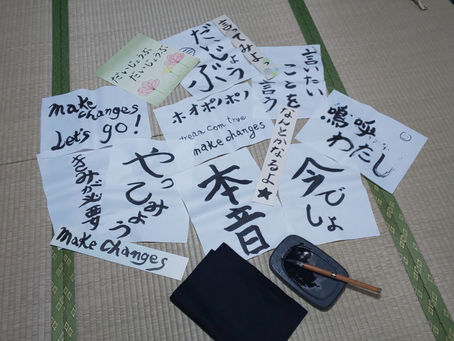 だいじょうぶ、
だいじょうぶ
だいじょう
ぶ
言ってみよっ
言いたい
ことを
言う
make changes
Let's go!
ホオポノポノ
dream com true
make changes
なんとかなるよ★
嗚呼
わたし
きみが必要
やっ
てみ
よう
本音
今でしょ
make changes